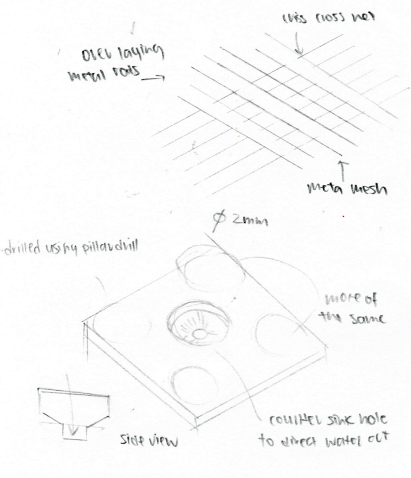 criss cross net
over laying
metal rods
meta mesh
Ø 2mm
drilled using pillar drill
more of
the same
counter sink hole
to direct water out
side view